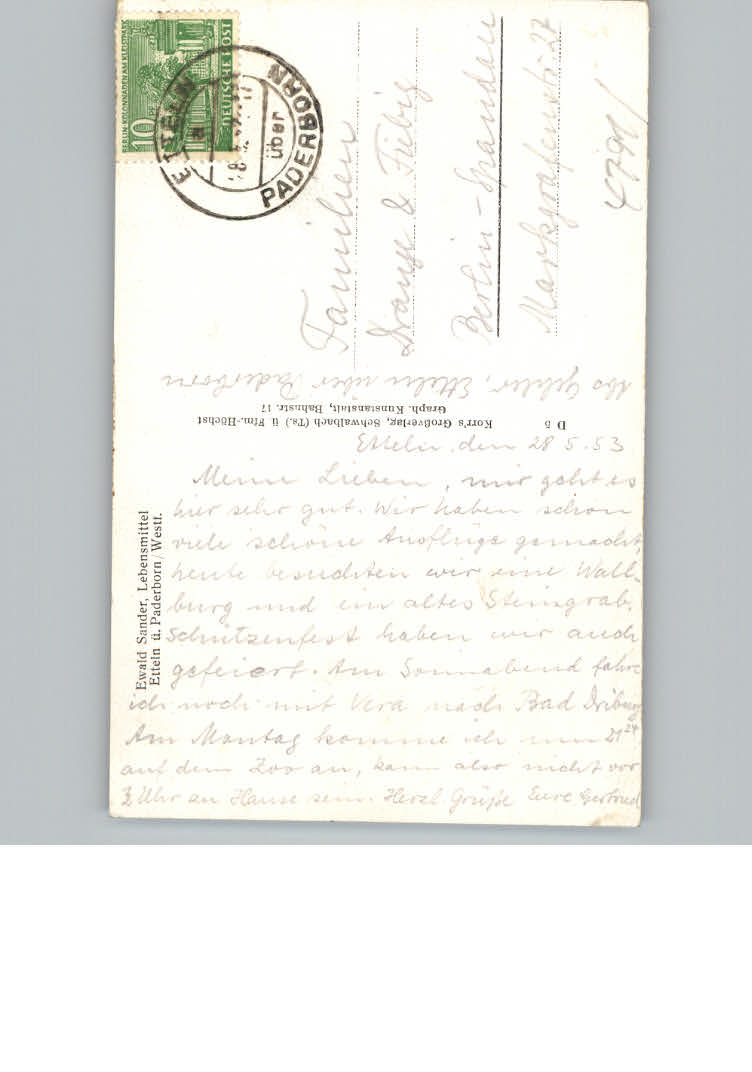 BERLIN-KOLONNADEN AM KLEISTPARK
10
DEUTSCHE POST
ETTELN
über
PADERBORN
a
Familien
Drange & Fiebig
Berlin-Spandau
Markgrafenstr. 27
4791
Abs Gehler, Etteln über Paderborn
Korr's Großverlag, Schwalbach (Ts.) ü Ffm.-Höchst
Graph. Kunstanstalt, Bahnstr. 17
D 5
Ewald Sander, Lebensmittel
Etteln ü. Paderborn/Westf.
Etteln, den 28.5.53
Meine Lieben, mir geht es
hier sehr gut. Wir haben schon
viele schöne Ausflüge gemacht,
heute besuchten wir eine Wall-
burg und ein altes Steingrab.
Schützenfest haben wir auch
gefeiert. Am Sonnabend fahre
ich noch mit Vera nach Bad Driburg
Am Montag komme ich um 21 24
auf dem Zoo an, kann also nicht vor
Uhr zu Hause sein. Herzl. Grüße Eure Gertrud